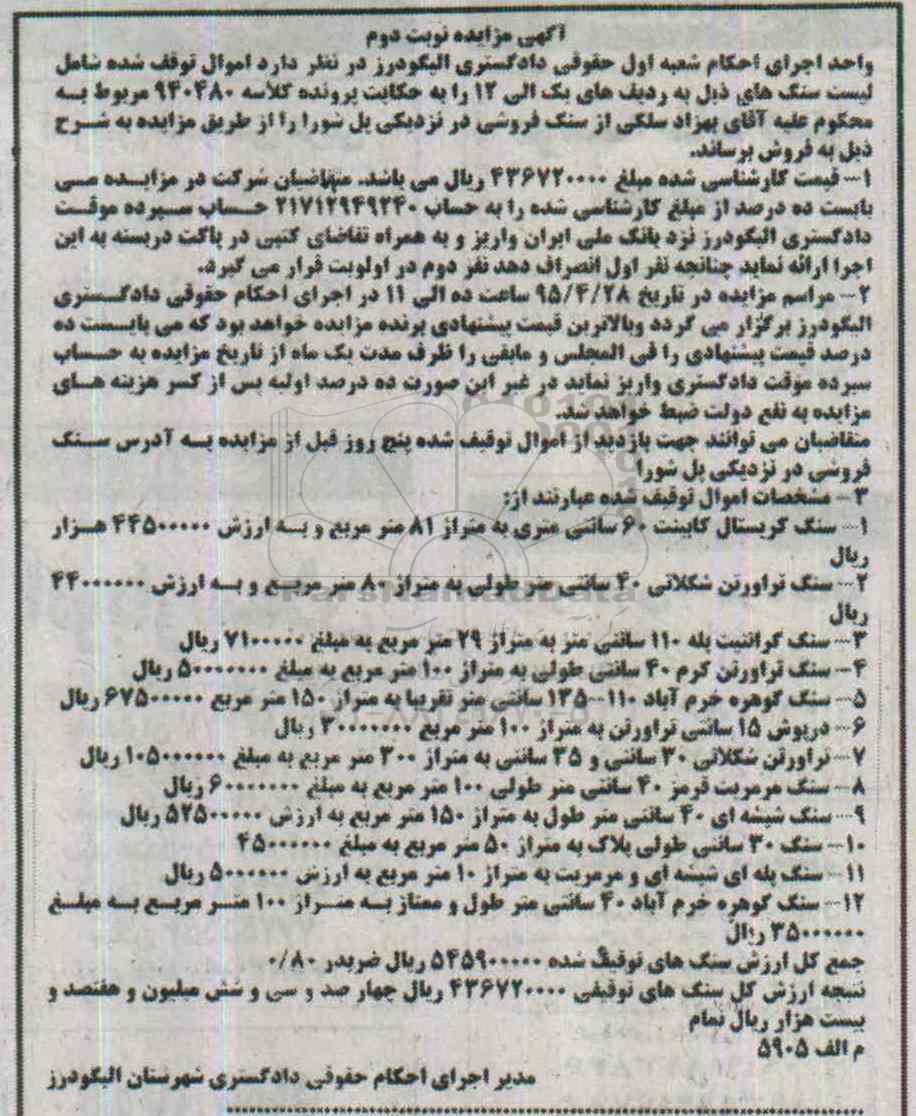 آگهی مزایده نوبت دوم
واحد اجرای احکام شعبه اول حقوقی دادگستری الیگودرز در نظر دارد اموال توقف شده شامل
لیست سنگ های ذیل به ردیف های یک الی ۱۲ را به حکایت پرونده کلاسه ۹۴۰۴۸۰ مربوط به
محکوم علیه آقای بهزاد سلکی از سنگ فروشی در نزدیکی پل شورا را از طریق مزایده به شرح
ذیل به فروش برساند.
۱- قیمت کارشناسی شده مبلغ ۴۳۶۷۲۰۰۰۰ ریال می باشد. متقاضیان شرکت در مزایده می
بایست ده درصد از مبلغ کارشناسی شده را به حساب ۲۱۷۱۲۹۴۹۲۴۰ حساب سپرده موقت
دادگستری الیگودرز نزد بانک ملی ایران واریز و به همراه تقاضای کتبی در پاکت دربسته به این
اجرا ارائه نماید چنانچه نفر اول انصراف دهد نفر دوم در اولویت قرار می گیرد.
۲- مراسم مزایده در تاریخ ۹۵/۴/۲۸ ساعت ده الی ۱۱ در اجرای احکام حقوقی دادگستری
الیگودرز برگزار می گردد وبالاترین قیمت پیشنهادی برنده مزایده خواهد بود که می بایست ده
درصد قیمت پیشنهادی را فی المجلس و مابقی را ظرف مدت یک ماه از تاریخ مزایده به حساب
سپرده موقت دادگستری واریز نماید در غیر این صورت ده درصد اولیه پس از کسر هزینه های
مزایده به نفع دولت ضبط خواهد شد.
متقاضیان می توانند جهت بازدید از اموال توقیف شده پنج روز قبل از مزایده به آدرس سنگ
فروشی در نزدیکی پل شورا
۳- مشخصات اموال توقیف شده عبارتند از:
۱- سنگ کریستال کابینت ۶۰ سانتی متری به متراژ ۸۱ متر مربع و به ارزش ۴۴۵۰۰۰۰۰ هزار
ریال
۲- سنگ تراورتن شکلاتی ۴۰ سانتی متر طولی به متراژ ۸۰ متر مربع و به ارزش ۴۴۰۰۰۰۰۰
ریال
۳- سنگ گرانیت پله ۱۱۰ سانتی متر به متراژ ۲۹ متر مربع به مبلغ ۷۱۰۰۰۰۰ ریال
۴- سنگ تراورتن کرم ۴۰ سانتی طولی به متراژ ۱۰۰ متر مربع به مبلغ ۵۰۰۰۰۰۰۰ ریال
۵- سنگ گوهره خرم آباد ۱۱۰-۱۳۵ سانتی متر تقریبا به متراژ ۱۵۰ متر مربع ۶۷۵۰۰۰۰۰ ریال
۶- درپوش ۱۵ سانتی تراورتن به متراژ ۱۰۰ متر مربع ۳۰۰۰۰۰۰۰ ریال
۷- تراورتن شکلاتی ۳۰ سانتی و ۳۵ سانتی به متراژ ۳۰۰ متر مربع به مبلغ ۱۰۵۰۰۰۰۰۰ ریال
۸- سنگ مرمریت قرمز ۴۰ سانتی متر طولی ۱۰۰ متر مربع به مبلغ ۶۰۰۰۰۰۰۰ ریال
۹- سنگ شیشه ای ۴۰ سانتی متر طول به متراژ ۱۵۰ متر مربع به ارزش ۵۲۵۰۰۰۰۰ ریال
۱۰- سنگ ۳۰ سانتی طولی پلاک به متراژ ۵۰ متر مربع به مبلغ ۴۵۰۰۰۰۰۰
۱۱- سنگ پله ای شیشه ای و مرمریت به متراژ ۱۰ متر مربع به ارزش ۵۰۰۰۰۰۰ ریال
۱۲- سنگ گوهره خرم آباد ۴۰ سانتی متر طول و ممتاز به متراژ ۱۰۰ متر مربع به مبلغ
۳۵۰۰۰۰۰۰ ریال
جمع کل ارزش سنگ های توقیف شده ۵۴۵۹۰۰۰۰۰ ریال ضربدر ۰/۸۰
نتیجه ارزش کل سنگ های توقیفی ۴۳۶۷۲۰۰۰۰ ریال چهار صد و سی و شش میلیون و هفتصد و
بیست هزار ریال تمام
م الف ۵۹۰۵
مدیر اجرای احکام حقوقی دادگستری شهرستان الیگودرز
ParsNamadData